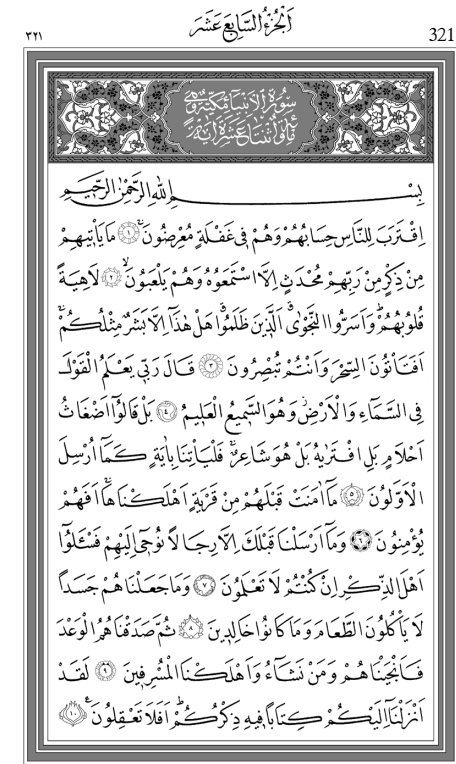 اَلْجُزْءُ السَّابِعَ عَشَرَ
٣٢١
321
سُورَةُ الْاَنْبِيَاءِ مَكِّيَّةٌ وَهِيَ
مِائَةٌ وَاثْنَتَا عَشَرَةَ اٰيَةً
بِسْــمِ اللهِ الرَّحْمٰنِ الرَّحِيمِ
اِقْتَرَبَ لِلنَّاسِ حِسَابُهُمْ وَهُمْ فِى غَفْلَةٍ مُعْرِضُونَۚ ﴿١﴾ مَا يَأْتِيهِمْ
مِنْ ذِكْرٍ مِنْ رَبِّهِمْ مُحْدَثٍ اِلَّا اسْتَمَعُوهُ وَهُمْ يَلْعَبُونَۙ ﴿٢﴾ لَاهِيَةً
قُلُوبُهُمْۜ وَاَسَرُّوا النَّجْوٰىۗ اَلَّذِينَ ظَلَمُواۗ هَلْ هٰذَٓا اِلَّا بَشَرٌ مِثْلُكُمْۚ
اَفَتَأْتُونَ السِّحْرَ وَاَنْتُمْ تُبْصِرُونَ ﴿٣﴾ قَالَ رَبِّى يَعْلَمُ الْقَوْلَ
فِى السَّمَٓاءِ وَالْاَرْضِۘ وَهُوَ السَّمِيعُ الْعَلِيمُ ﴿٤﴾ بَلْ قَالُٓوا اَضْغَاثُ
اَحْلَامٍ بَلِ افْتَرٰيهُ بَلْ هُوَ شَاعِرٌۚ فَلْيَأْتِنَا بِاٰيَةٍ كَمَٓا اُرْسِلَ
الْاَوَّلُونَ ﴿٥﴾ مَٓا اٰمَنَتْ قَبْلَهُمْ مِنْ قَرْيَةٍ اَهْلَكْنَاهَاۚ اَفَهُمْ
يُؤْمِنُونَ ﴿٦﴾ وَمَٓا اَرْسَلْنَا قَبْلَكَ اِلَّا رِجَالًا نُوحِٓى اِلَيْهِمْ فَسْـَٔلُٓوا
اَهْلَ الذِّكْرِ اِنْ كُنْتُمْ لَا تَعْلَمُونَ ﴿٧﴾ وَمَا جَعَلْنَاهُمْ جَسَدًا
لَا يَأْكُلُونَ الطَّعَامَ وَمَا كَانُوا خَالِدِينَ ﴿٨﴾ ثُمَّ صَدَقْنَاهُمُ الْوَعْدَ
فَاَنْجَيْنَاهُمْ وَمَنْ نَشَٓاءُ وَاَهْلَكْنَا الْمُسْرِفِينَ ﴿٩﴾ لَقَدْ
اَنْزَلْنَٓا اِلَيْكُمْ كِتَابًا فِيهِ ذِكْرُكُمْۜ اَفَلَا تَعْقِلُونَ۟ ﴿١٠﴾